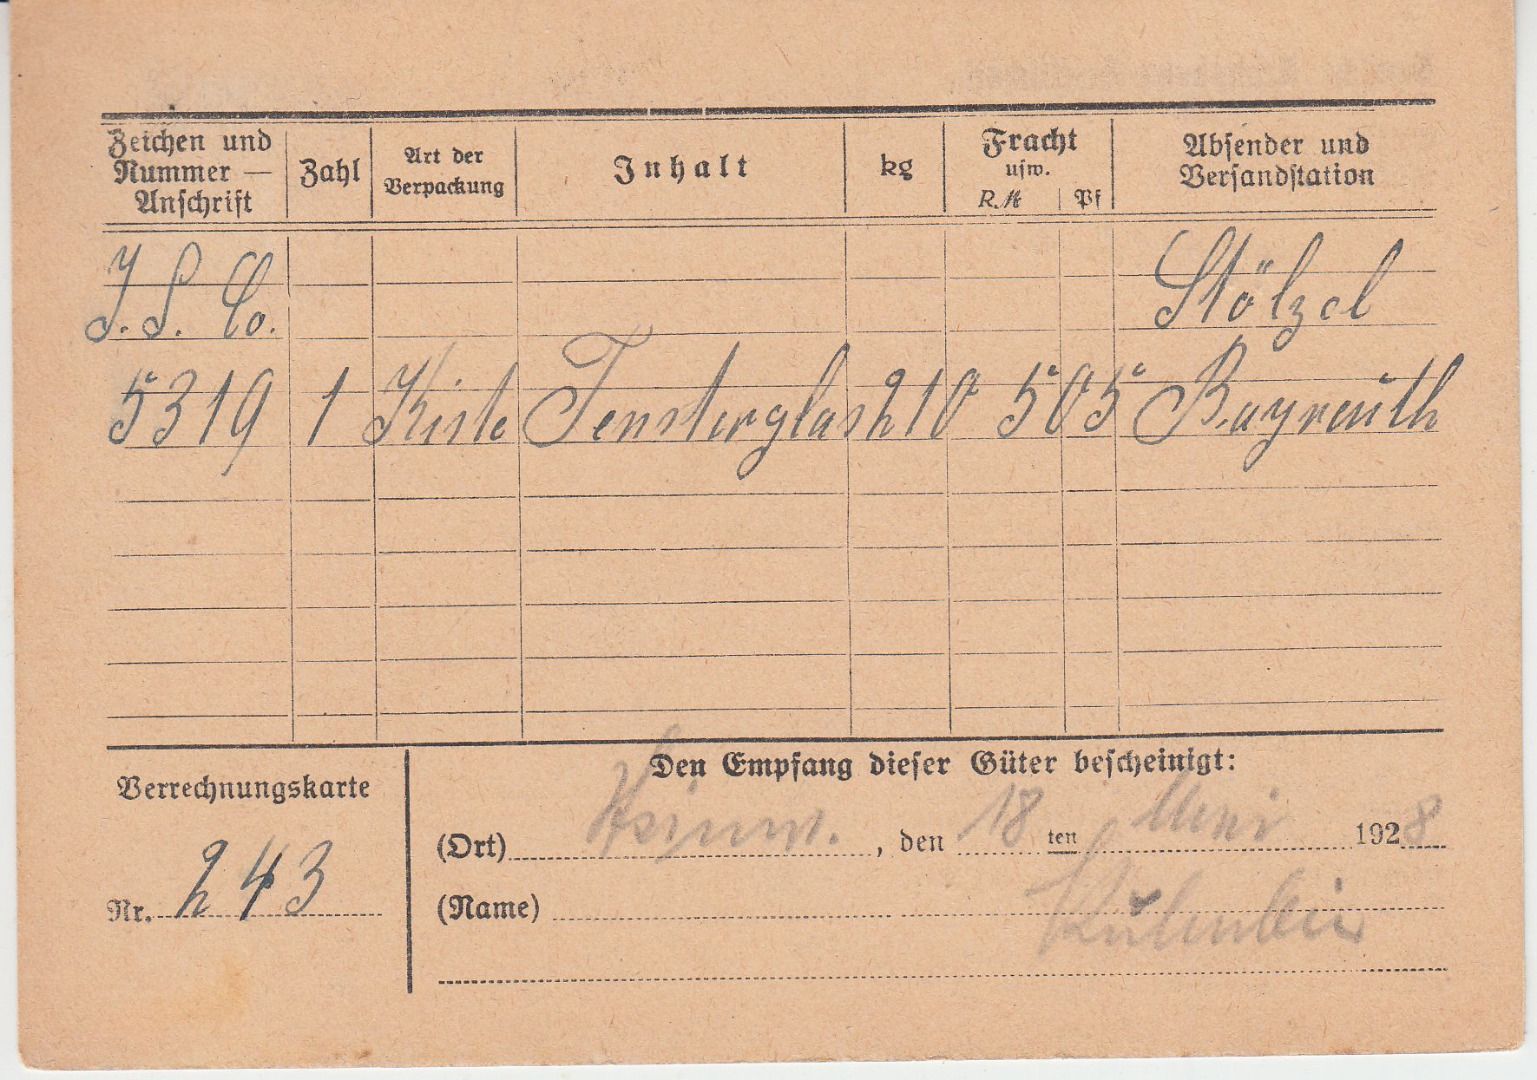 Zeichen und Nummer — Anschrift
Zahl
Art der Verpackung
Inhalt
kg
Fracht usw.
R.M Pf
Absender und Versandstation
J. S. Co. Stölzel
5319 1 Kiste Fensterglas 210 5 05 Bayreuth
Verrechnungskarte
Nr. 243
Den Empfang dieser Güter bescheinigt:
(Ort) , den 18 ten 1928
(Name)